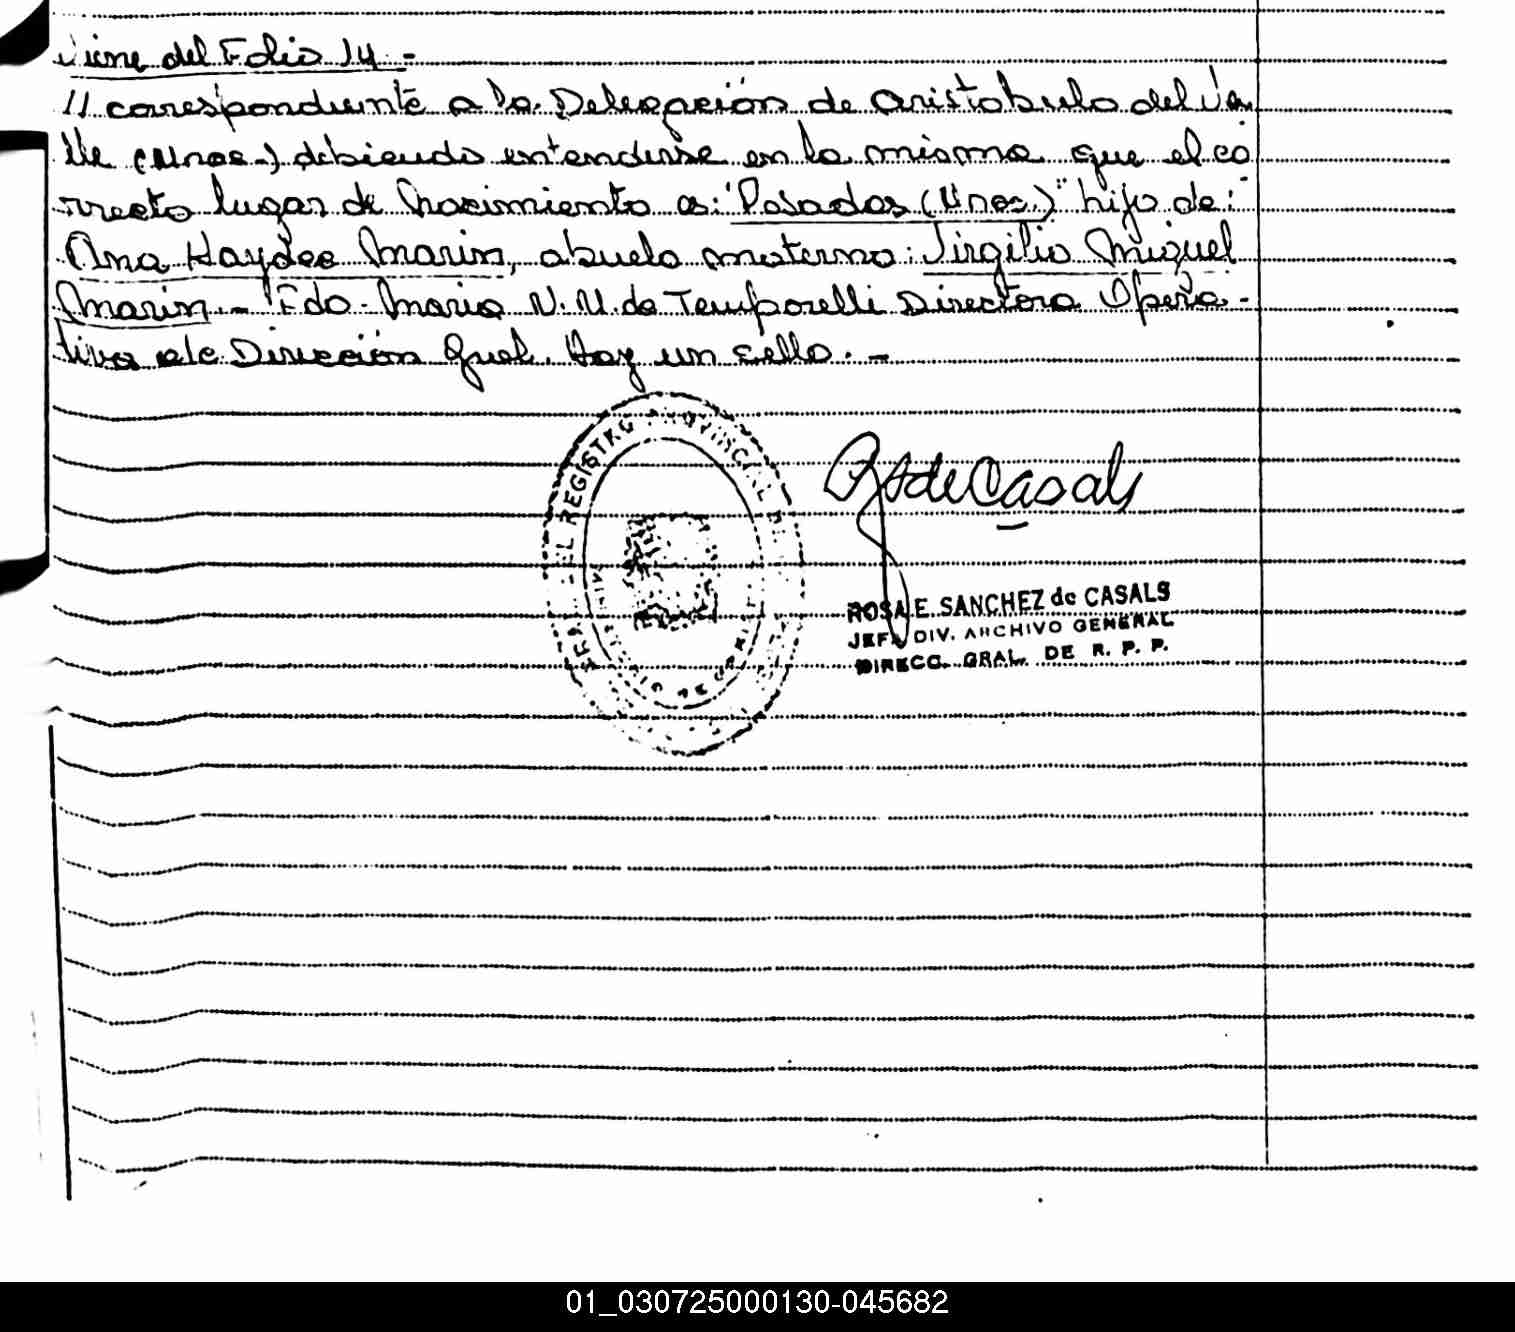 Viene del Folio 14.-
// correspondiente a la Delegación de Aristobulo del Va
lle (Mnes.-) debiendo entenderse en la misma que el co
rrecto lugar de Nacimiento es: "Posadas (Mnes.)" hijo de:
Ana Haydee Marin, abuelo materno: Virgilio Miguel
Marin.- Fdo. Maria N. M. de Temporelli Directora Opera-
tiva de Dirección Gral. Hay un sello.-
REGISTRO PROVINCIAL
RS de Casals
ROSA E. SANCHEZ de CASALS
JEFA DIV. ARCHIVO GENERAL
DIRECC. GRAL. DE R. P. P.
01_030725000130-045682